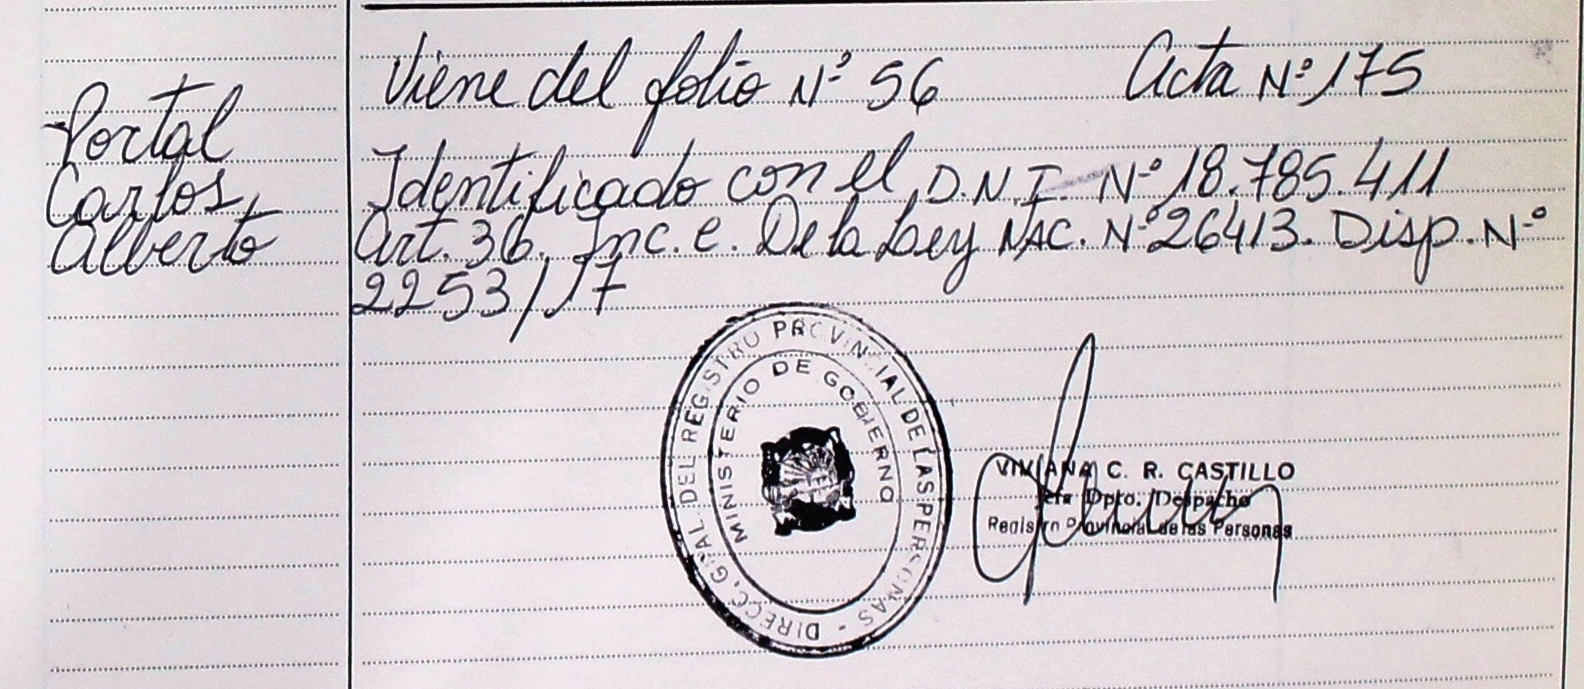 Portal
Carlos
Alberto
Viene del folio Nº 56 Acta Nº 175
Identificado con el D.N.I. Nº 18.785.411
Art. 36. Inc. e. De la Ley NAC. Nº 26413. Disp. Nº
2253/17
DIRECC. GRAL. DEL REGISTRO PROVINCIAL DE LAS PERSONAS -
MINISTERIO DE GOBIERNO
VIVIANA C. R. CASTILLO
Jefa Dpto. Despacho
Registro Provincial de las Personas